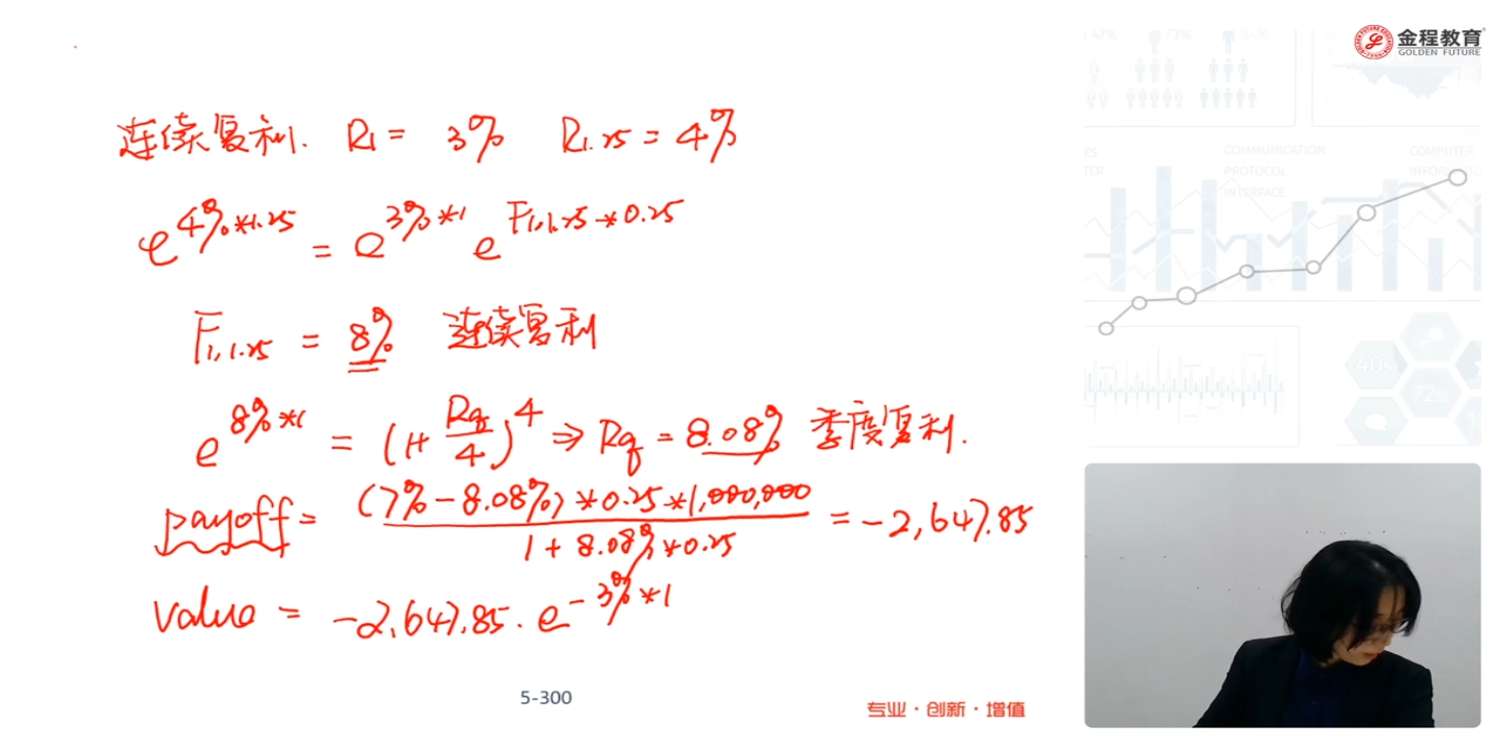 金程教育
GOLDEN FUTURE
连续复利. R₁ = 3% R₁.₂₅ = 4%
e^4%*1.25 = e^3%*1 e^F₁,₁.₂₅*0.25
F₁,₁.₂₅ = 8% 连续复利
e^8%*1 = (1+Rq/4)^4 ⇒ Rq = 8.08% 季度复利.
payoff = (7%-8.08%)*0.25*1,000,000 / 1+8.08%*0.25 = -2,647.85
value = -2,647.85 · e^-3%*1
COMMUNICATION
PROTOCOL
INTERFACE
COMPUTER
5-300
专业·创新·增值